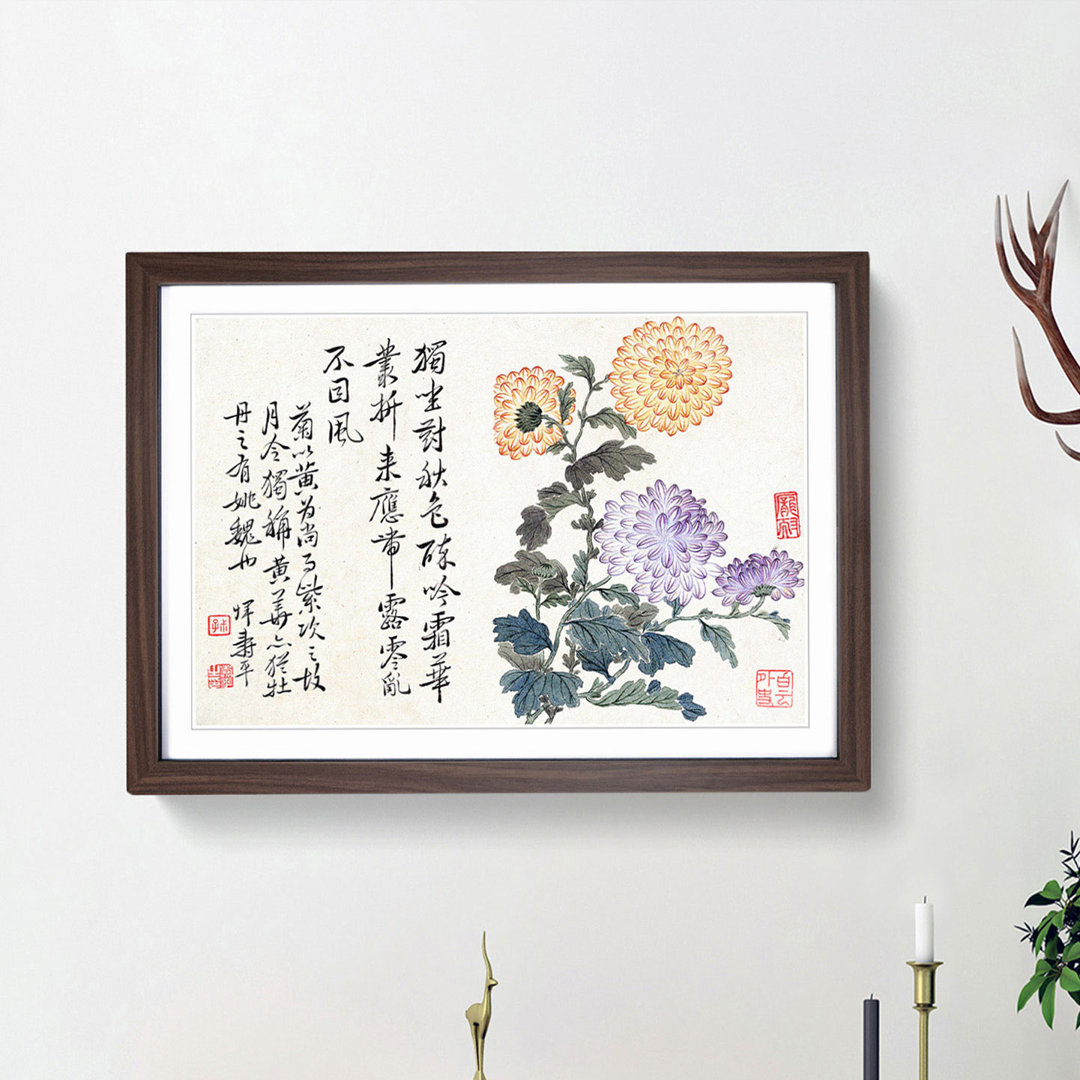 獨坐對秋色醉吟霜華
叢折来應帶露零亂
不因風
菊以黄为尚而紫次之故
月令獨稱黄華亦猶牡
丹之有姚魏也 惲壽平
白云外史